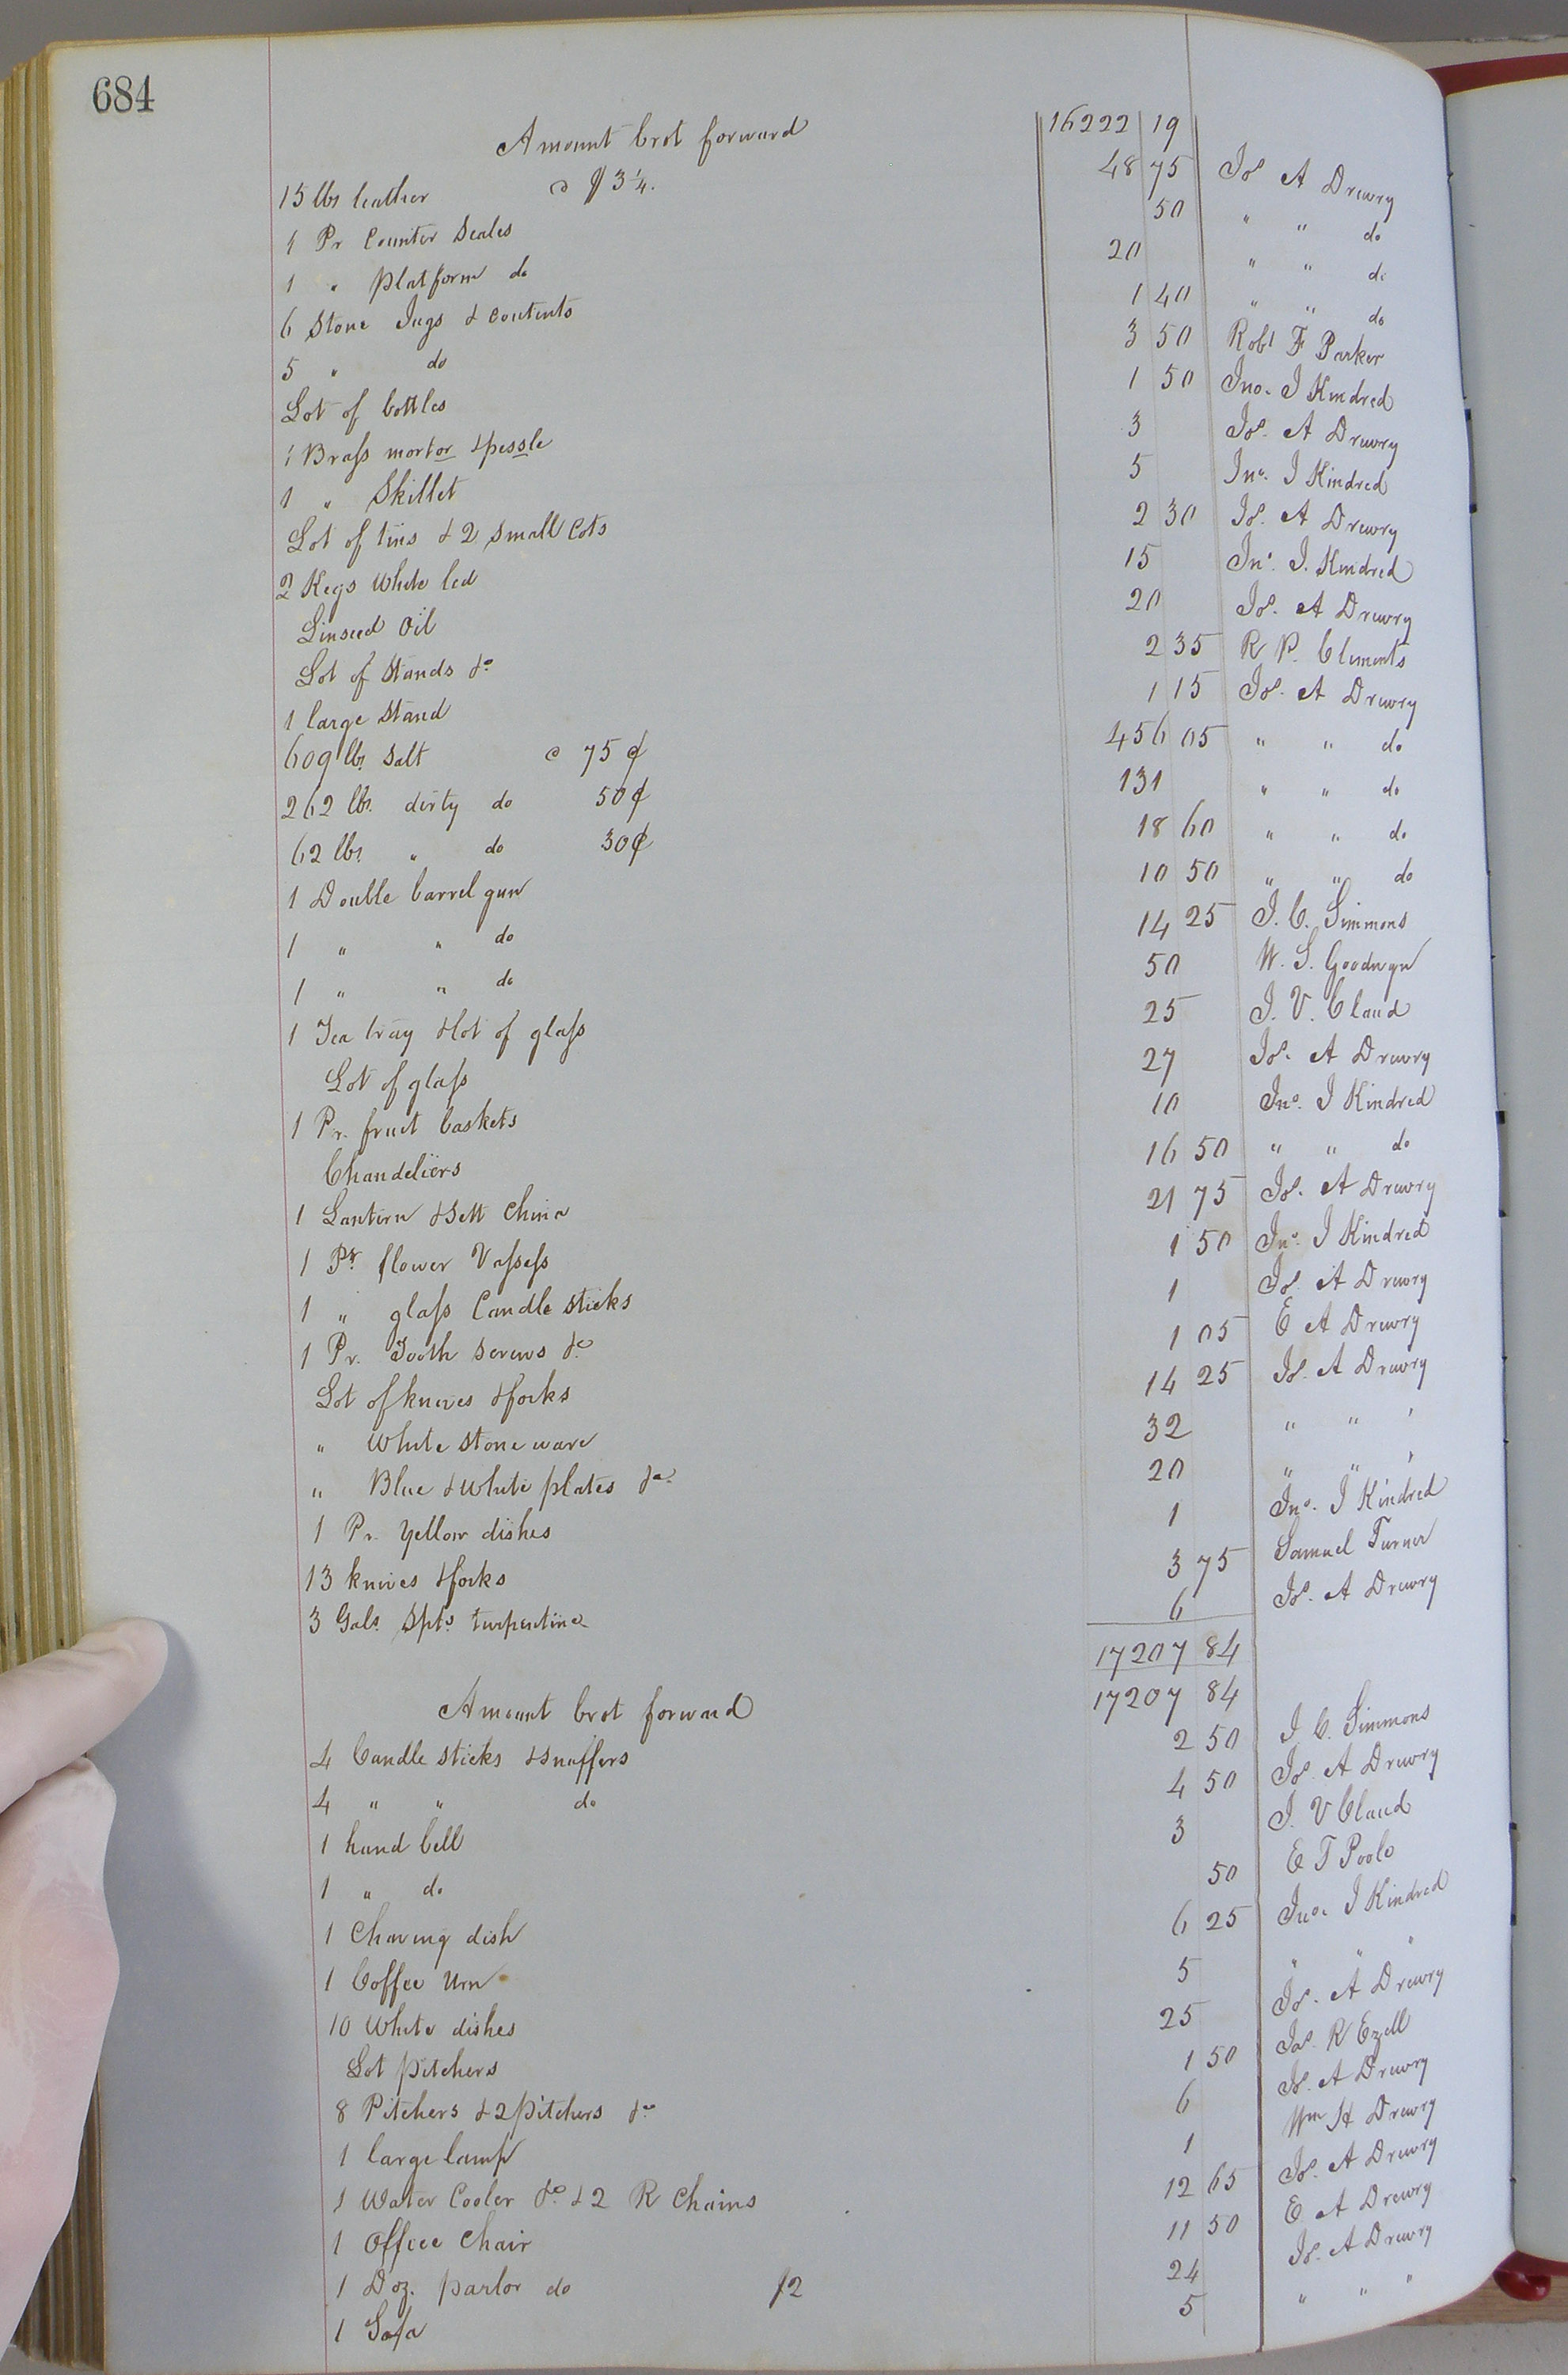 684
Amount brot forward 16222 19
15 lbs leather @ $3¼. 48 75 Jos A Drewry
1 Pr Counter Scales 50 " " do
1 " platform do 20 " " do
6 Stone Jugs & contents 1 40 " " do
5 " do 3 50 Robt F Parker
Lot of bottles 1 50 Jno. J Kindred
1 Brass mortor & pessle 3 Jos. A Drewry
1 " Skillet 5 Jno. J Kindred
Lot of tins & 2 small Cots 2 30 Jos. A Drewry
2 Kegs White led 15 Jno. J. Kindred
Linseed Oil 20 Jos. A Drewry
Lot of Stands &c 2 35 R P. Clements
1 large Stand 1 15 Jos. A Drewry
609 lbs Salt @ 75¢ 456 05 " " do
262 lbs. dirty do 50¢ 131 " " do
62 lbs. " do 30¢ 18 60 " " do
1 Double barrel gun 10 50 " " do
1 " " do 14 25 J. C. Simmons
1 " " do 50 W. S. Goodwyn
1 Tea tray & lot of glass 25 J. V. Claud
Lot of glass 27 Jos. A Drewry
1 Pr. fruit baskets 10 Jno. J Kindred
Chandeliers 16 50 " " do
1 Lantern & Sett China 21 75 Jos. A Drewry
1 Pr. flower Vasess 1 50 Jno. J Kindred
1 " glass Candle sticks 1 Jos. A Drewry
1 Pr. Tooth Screws &c 1 05 E A Drewry
Lot of knives & forks 14 25 Jos. A Drewry
" White stone ware 32 " " "
" Blue & white plates &c 20 " " "
1 Pr. Yellow dishes 1 Jno. J Kindred
13 knives & forks 3 75 Samuel Turner
3 Gals. Spts. turpentine 6 Jos. A Drewry
17207 84
Amount brot forward 17207 84
4 Candle sticks & snuffers 2 50 J. C. Simmons
4 " " do 4 50 Jos. A Drewry
1 hand bell 3 J. V Claud
1 " do 50 E T Poole
1 Chaving dish 6 25 Jno. J Kindred
1 Coffee Urn 5 " " "
10 White dishes 25 Jos. A Drewry
Lot pitchers 1 50 Jas. R Ezell
8 Pitchers & 2 pitchers &c 6 Jos. A Drewry
1 large lamp 1 Wm H Drewry
1 Water Cooler &c & 2 R Chains 12 65 Jos. A Drewry
1 Office Chair 11 50 E A Drewry
1 Doz. parlor do $2 24 Jos. A Drewry
1 Sofa 5 " " "